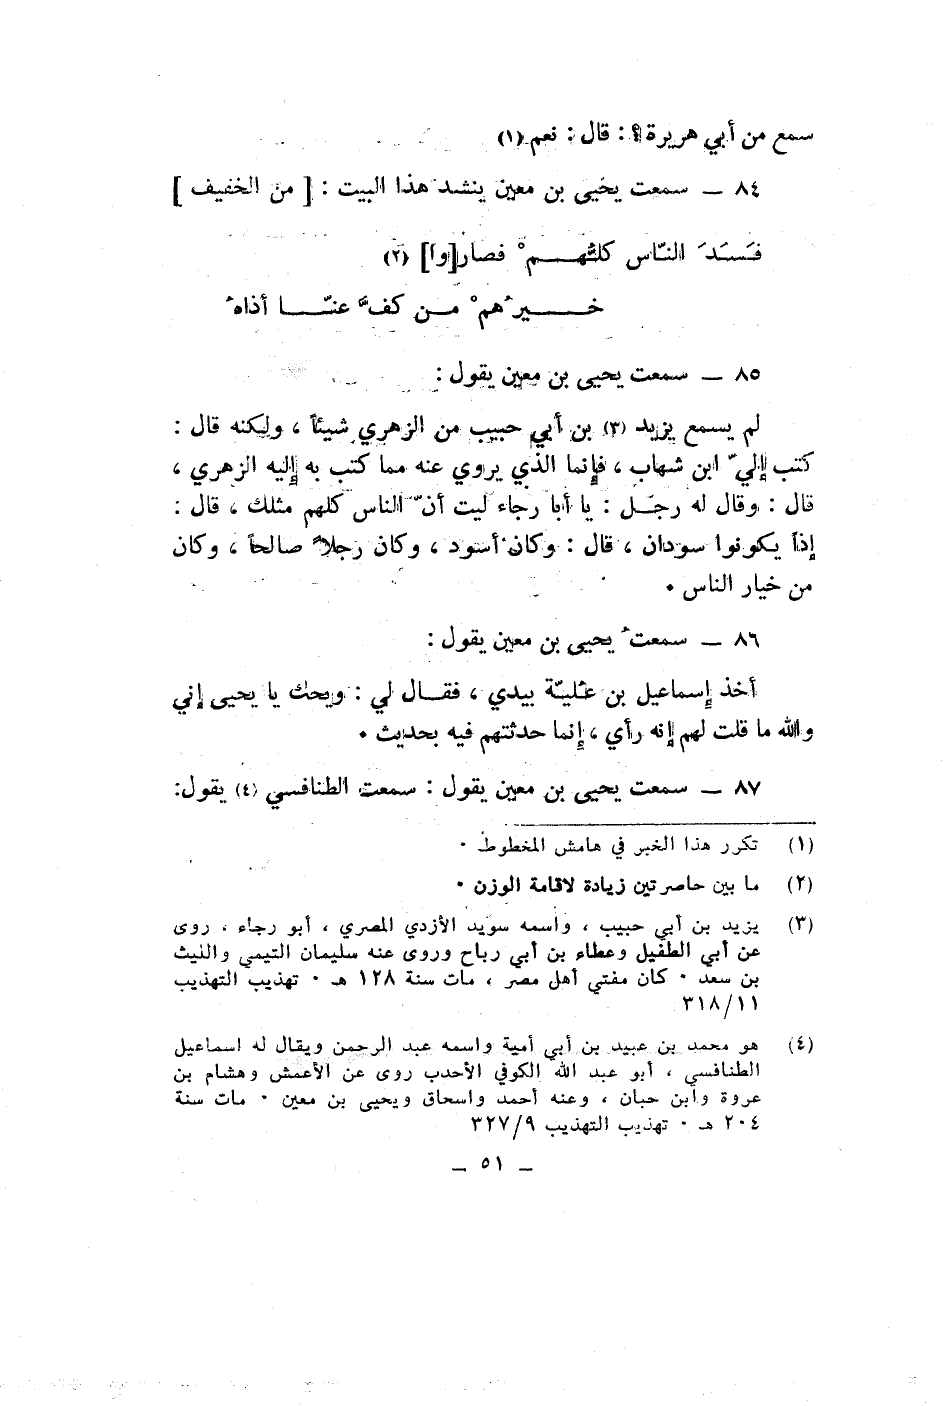 سمع من أبي هريرة؟ : قال : نعم (١)
٨٤ – سمعت يحيى بن معين ينشد هذا البيت : [ من الخفيف ]
فَسَدَ النّاس كلُّهــم ْ فصار[وا] (٢)
خــــيرُهم ْ مــن كفَّ عنّــا أذاهُ
٨٥ – سمعت يحيى بن معين يقول :
لم يسمع يزيد (٣) بن أبي حبيب من الزهري شيئاً ، ولكنه قال :
كتب إليّ ابن شهاب ، فإنما الذي يروي عنه مما كتب به إليه الزهري ،
قال : وقال له رجل : يا أبا رجاء ليت أنّ الناس كلهم مثلك ، قال :
إذاً يكونوا سودان ، قال : وكان أسود ، وكان رجلاً صالحاً ، وكان
من خيار الناس ٠
٨٦ – سمعتُ يحيى بن معين يقول :
أخذ إسماعيل بن عُليّة بيدي ، فقــال لي : ويحك يا يحيى إني
والله ما قلت لهم إنه رأي ، إنما حدثتهم فيه بحديث ٠
٨٧ – سمعت يحيى بن معين يقول : سمعت الطنافسي (٤) يقول:
(١) تكرر هذا الخبر في هامش المخطوط ٠
(٢) ما بين حاصرتين زيادة لاقامة الوزن ٠
(٣) يزيد بن أبي حبيب ، واسمه سويد الأزدي المصري ، أبو رجاء ، روى
عن أبي الطفيل وعطاء بن أبي رباح وروى عنه سليمان التيمي والليث
بن سعد ٠ كان مفتي أهل مصر ، مات سنة ١٢٨ هـ ٠ تهذيب التهذيب
٣١٨/١١
(٤) هو محمد بن عبيد بن أبي أمية واسمه عبد الرحمن ويقال له اسماعيل
الطنافسي ، أبو عبد الله الكوفي الأحدب روى عن الأعمش وهشام بن
عروة وابن حبان ، وعنه أحمد واسحاق ويحيى بن معين ٠ مات سنة
٢٠٤ هـ ٠ تهذيب التهذيب ٣٢٧/٩
– ٥١ –